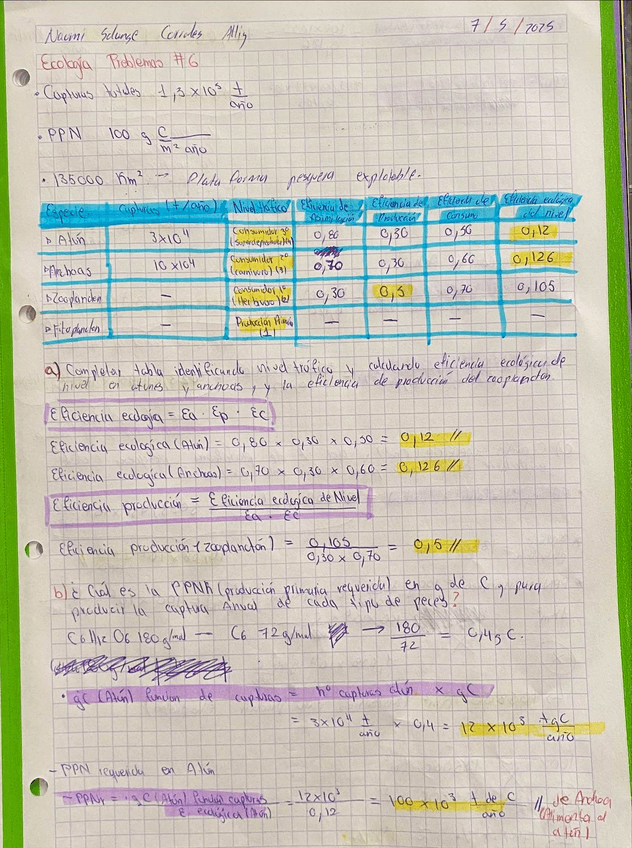 7/5/2025
Ecología Problemas #6
• Capturas totales 1,3 x 10⁵ t/año
• PPN 100 g C/m² año
• 135000 Km² → Plataforma pesquera explotable.
Especie Capturas (t/año) Nivel trófico Eficiencia de Asimilación Eficiencia de Producción Eficiencia de Consumo Eficiencia ecológica del Nivel
▹ Atún 3x10⁴ Consumidor 3º 0,80 0,30 0,50 0,12
▹ Anchoas 10 x 10⁴ Consumidor 2º (carnívoro) (3) 0,70 0,30 0,60 0,126
▹ Zooplancton — Consumidor 1º (Herbívoro) (2) 0,30 0,5 0,70 0,105
▹ Fitoplancton — (1) — — — —
a) Completar tabla identificando nivel trófico y calculando eficiencia ecológica de
nivel en atunes y anchoas, y la eficiencia de producción del zooplancton.
Eficiencia ecología = Ea · Ep · Ec
Eficiencia ecológica (Atún) = 0,80 x 0,30 x 0,50 = 0,12 //
Eficiencia ecológica (Anchoas) = 0,70 x 0,30 x 0,60 = 0,126 //
Eficiencia producción = Eficiencia ecológica de Nivel / Ea · Ec
Eficiencia producción (zooplanctón) = 0,105 / 0,30 x 0,70 = 0,5 //
b) ¿Cuál es la PPNR (producción primaria requerida) en g de C, para
producir la captura Anual de cada tipo de peces?
C6H12O6 180 g/mol — C6 72 g/mol → 180/72 = 0,4 g C.
• gC (Atún) función de capturas = nº capturas atún x gC
= 3x10⁴ t/año x 0,4 = 12 x 10³ tgC/año
- PPN requerida en Atún
- PPNr = gC (Atún) función capturas / E ecológica (Atún) = 12x10³ / 0,12 = 100 x 10³ t de C/año // de Anchoa
(Alimenta al
atún)